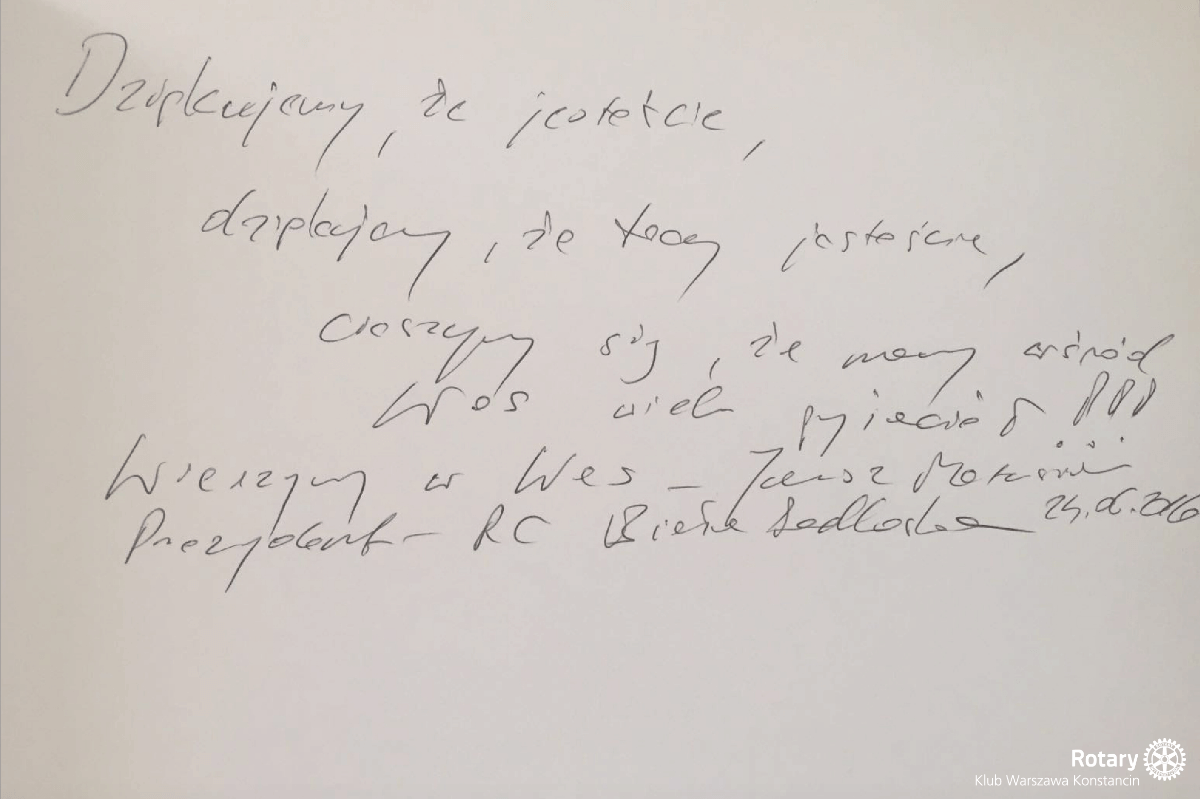 Dziękujemy, że jesteście,
dziękujemy, że tacy jesteście,
cieszymy się, że mamy wśród
Was wielu przyjaciół !!!
Wierzymy w Was – Janusz
Prezydent – RC Bielsko 24.06.2016
Rotary
Klub Warszawa Konstancin